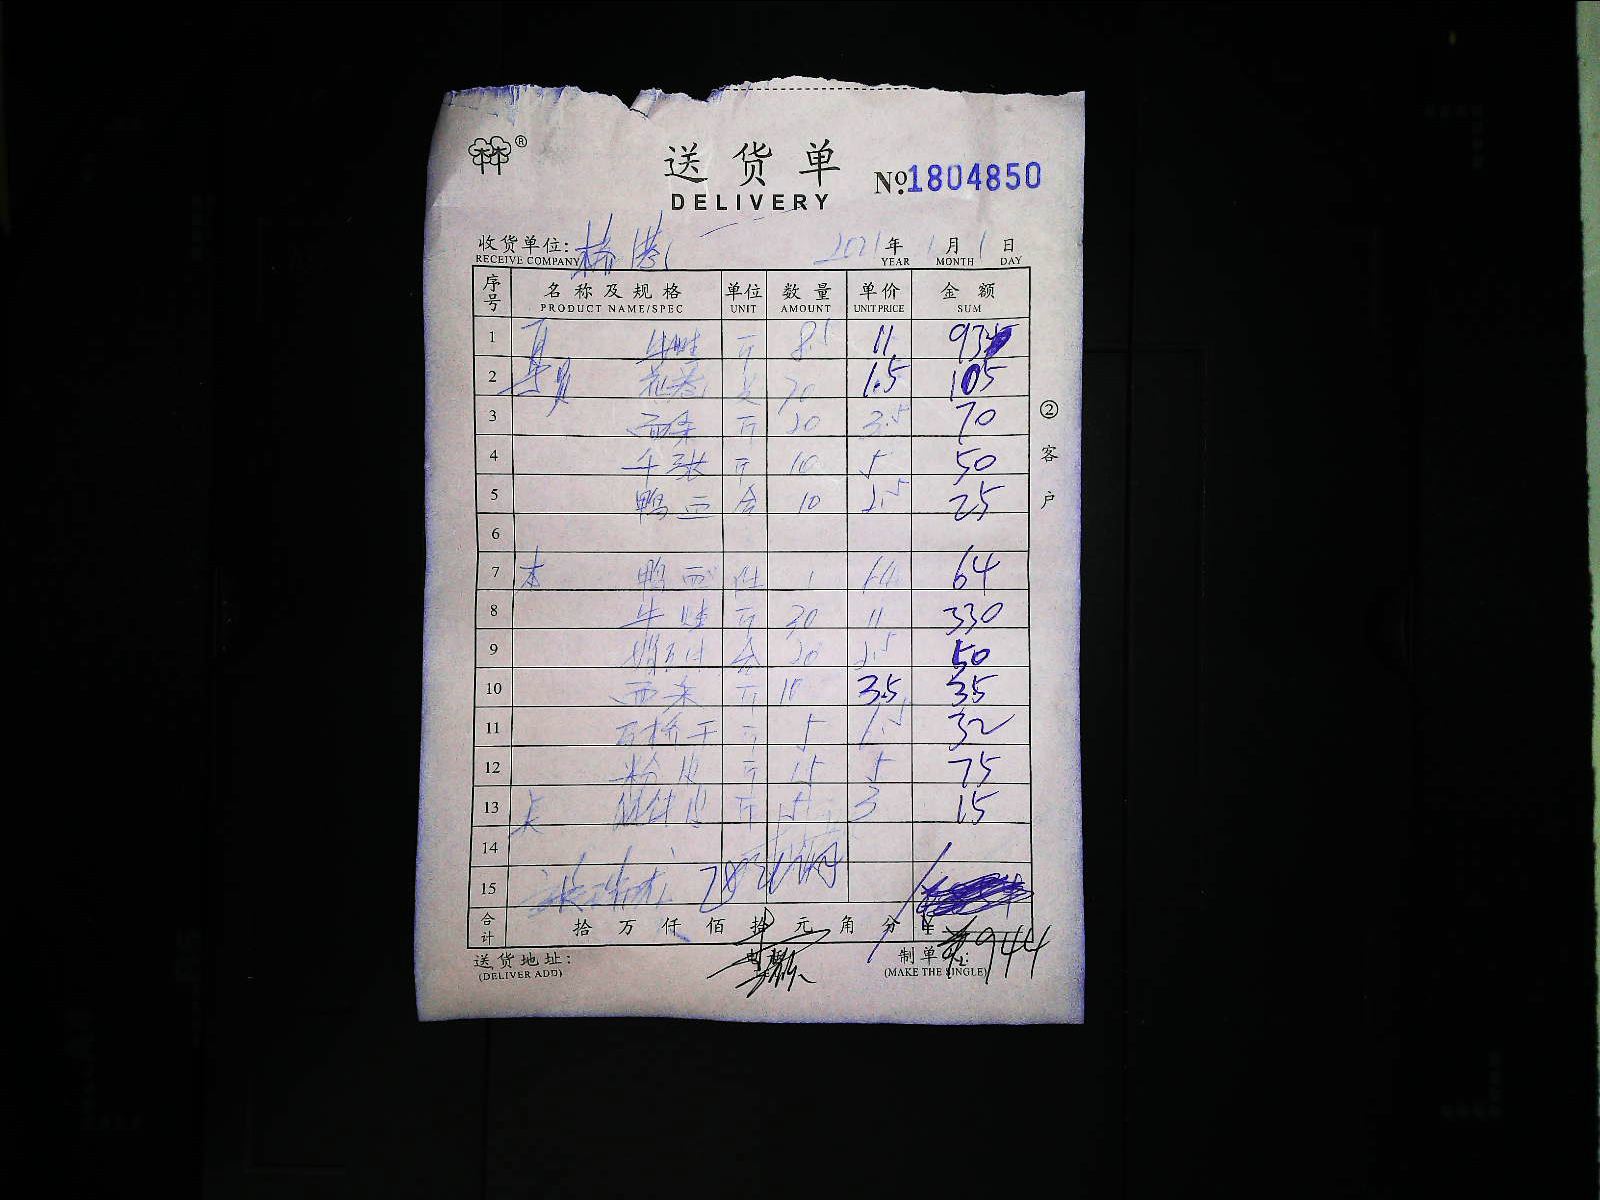 林 ®
送货单
DELIVERY
№ 1804850
收货单位: 桥港
RECEIVE COMPANY
2021 年 1 月 1 日
YEAR MONTH DAY
序号 名称及规格 单位 数量 单价 金额
PRODUCT NAME/SPEC UNIT AMOUNT UNIT PRICE SUM
1 牛蛙 斤 8.1 11 93
2 斤 70 1.5 105
3 面条 斤 20 3.5 70
4 千张 斤 10 5 50
5 鸭血 合 10 2.5 25
6
7 本 鸭 件 1 64 64
8 牛蛙 斤 30 11 330
9 合 20 2.5 50
10 面条 斤 10 3.5 35
11 石桥干 斤 5 6.5 32
12 粉皮 斤 15 5 75
13 皮 斤 5 3 15
14
15
合计 拾 万 仟 佰 拾 元 角 分 ¥ 944
送货地址:
(DELIVER ADD)
制单
(MAKE THE SINGLE)
② 客户